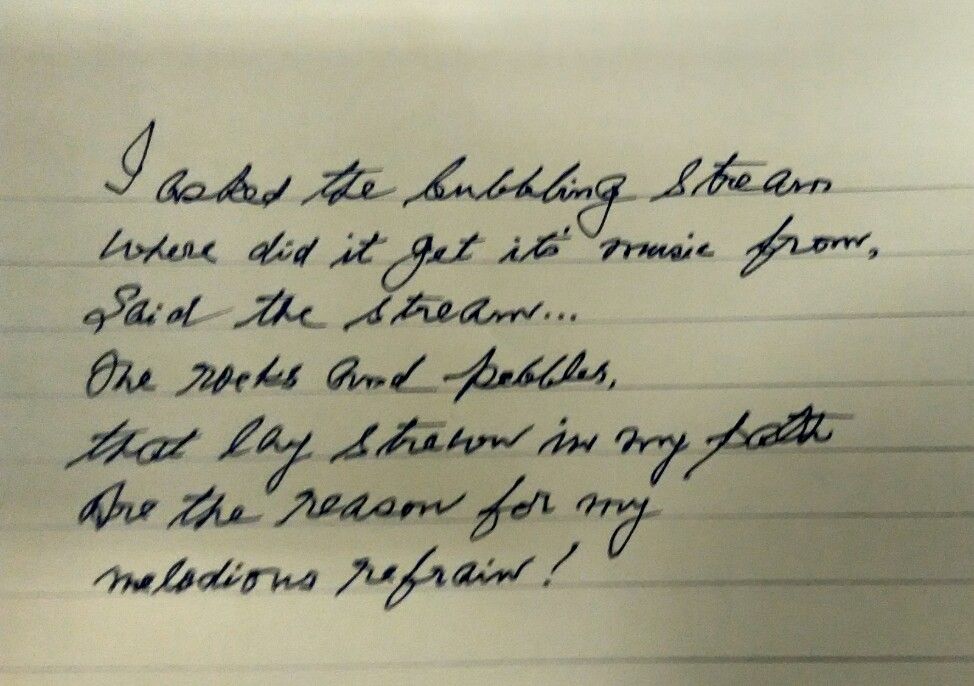 I asked the bubbling stream
where did it get it's music from,
Said the stream...
The rocks and pebbles,
that lay strewn in my path
Are the reason for my
melodious refrain!